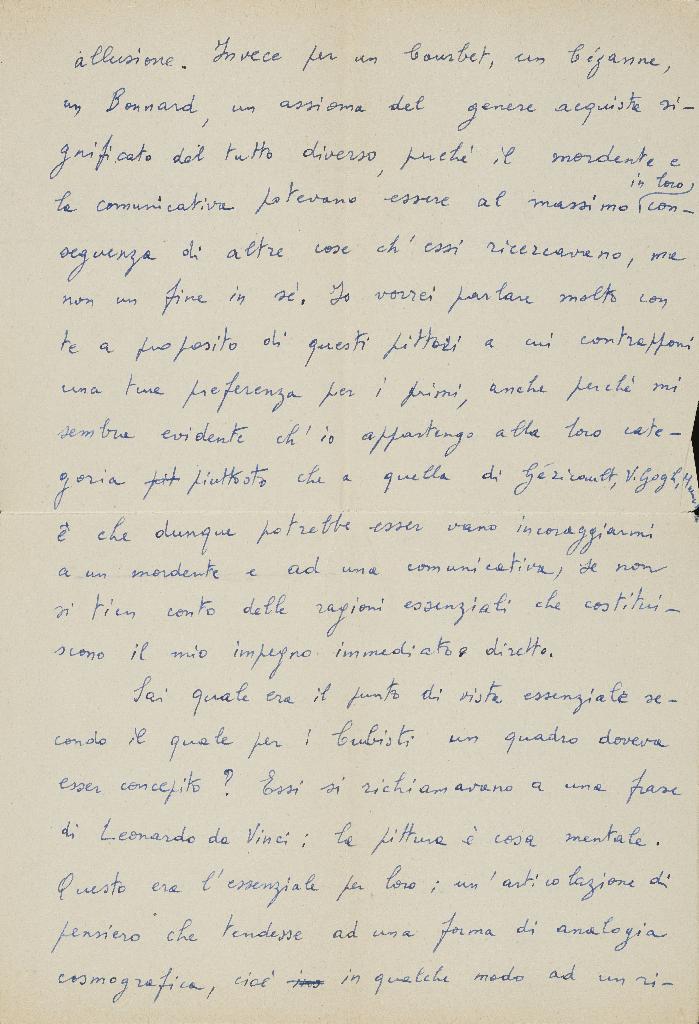 allusione. Invece per un Courbet, un Cézanne,
un Bonnard, un assioma del genere acquista si-
gnificato del tutto diverso, perché il mordente e
la comunicativa potevano essere al massimo in loro con-
seguenza di altre cose ch'essi ricercavano, ma
non un fine in sé. Io vorrei parlare molto con
te a proposito di questi pittori a cui contrapponi
una tua preferenza per i primi, anche perché mi
sembra evidente ch'io appartengo alla loro cate-
goria piuttosto che a quella di Géricault, V. Gogh,
e che dunque potrebbe esser vano incoraggiarmi
a un mordente e ad una comunicativa, se non
si tien conto delle ragioni essenziali che costitui-
scono il mio impegno immediato e diretto.
Sai quale era il punto di vista essenziale se-
condo il quale per i Cubisti un quadro doveva
esser concepito? Essi si richiamavano a una frase
di Leonardo da Vinci: la pittura è cosa mentale.
Questo era l'essenziale per loro; un'articolazione di
pensiero che tendesse ad una forma di analogia
cosmografica, cioè in qualche modo ad un ri-